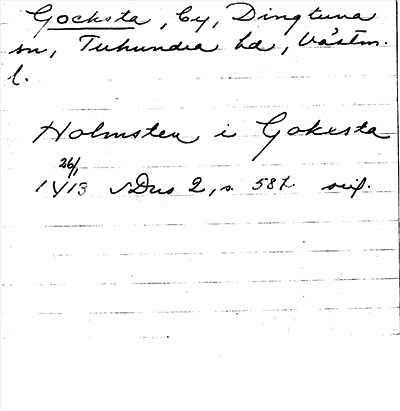 Gocksta, by, Dingtuna
sn, Tuhundra hd, Västm.
l.
Holmsten i Gokesta
26/1
1413 SDns 2, s. 587 avs.